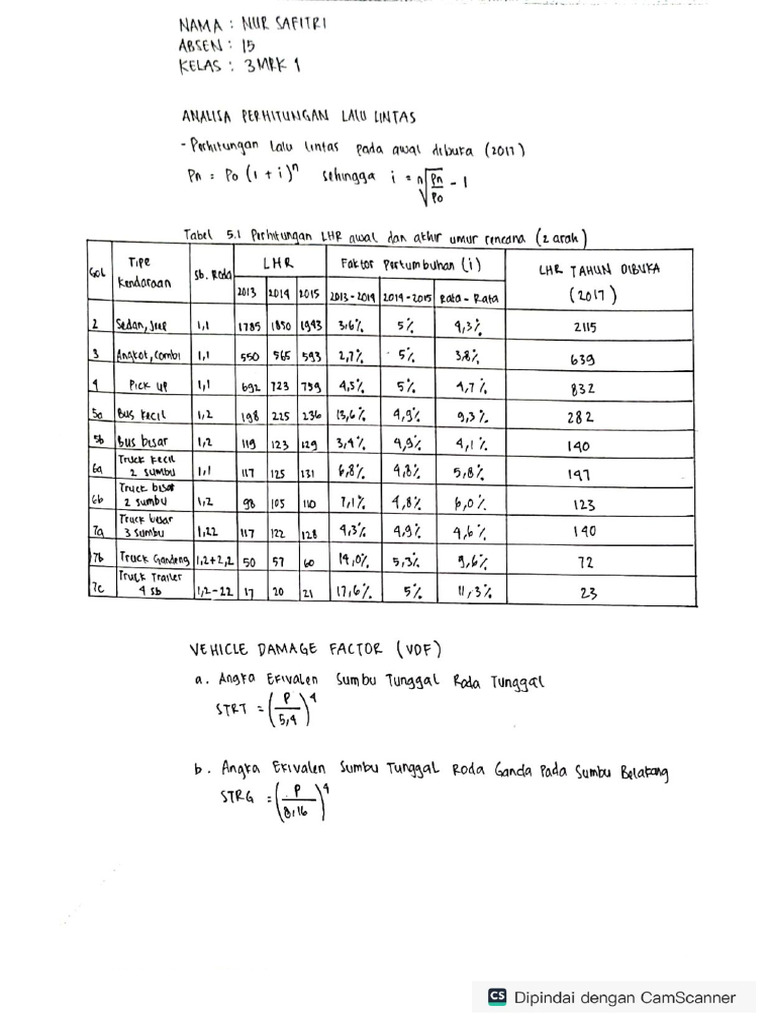 NAMA : NUR SAFITRI
ABSEN : 15
KELAS : 3 MRK 1
ANALISA PERHITUNGAN LALU LINTAS
- Perhitungan lalu lintas pada awal dibuka (2017)
Pn = Po (1 + i)^n sehingga i = n√Pn/Po - 1
Tabel 5.1 Perhitungan LHR awal dan akhir umur rencana (2 arah)
Gol Tipe Kendaraan Sb. Roda LHR Faktor Pertumbuhan (i) LHR TAHUN DIBUKA (2017)
2013 2014 2015 2013-2014 2014-2015 Rata-Rata
2 Sedan, Jeep 1,1 1785 1850 1943 3,6% 5% 4,3% 2115
3 Angkot, combi 1,1 550 565 593 2,7% 5% 3,8% 639
4 Pick up 1,1 692 723 759 4,5% 5% 4,7% 832
5a Bus kecil 1,2 198 225 236 13,6% 4,9% 9,3% 282
5b Bus besar 1,2 119 123 129 3,4% 4,9% 4,1% 140
6a Truck kecil 2 sumbu 1,1 117 125 131 6,8% 4,8% 5,8% 147
6b Truck besar 2 sumbu 1,2 98 105 110 7,1% 4,8% 6,0% 123
7a Truck besar 3 sumbu 1,22 117 122 128 4,3% 4,9% 4,6% 140
7b Truck Gandeng 1,2+2,2 50 57 60 14,0% 5,3% 9,6% 72
7c Truck Trailer 4 sb 1,2-22 17 20 21 17,6% 5% 11,3% 23
VEHICLE DAMAGE FACTOR (VDF)
a. Angka Ekivalen Sumbu Tunggal Roda Tunggal
STRT = (P/5,4)^4
b. Angka Ekivalen Sumbu Tunggal Roda Ganda Pada Sumbu Belakang
STRG = (P/8,16)^4
CS Dipindai dengan CamScanner